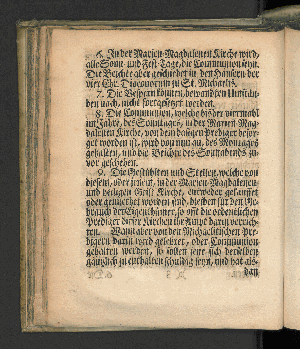 6. In der Marien-Magdalenen Kirche wird,
alle Sonn- und Fest-Tage, die Communion seyn.
Die Beichte aber geschiehet in den Häusern der
vier Ehr. Diaconorum zu St. Michaelis.
7. Die Vespern können, bewandten Umständen
den nach, nicht fortgesetzet werden.
8. Die Communion, welche bisher viermahl
im Jahre, des Sonntages, in der Marien Mag-
dalenen Kirche, von den dasigen Prediger besor-
get worden ist, wird von nun an, des Montages
gehalten, und die Beichte des Sonnabends zu-
vor geschehen.
9. Die Gestühlten und Stellen, welche von
diesem, oder jenem, in der Marien Magdalenen- und
heiligen Geist Kirche, entweder gekauffet
oder gemiethet worden sind, bleiben für den Ge-
brauch der Eigenthümer, so oft die ordentlichen
Prediger dieser Kirchen ihr Amt darin verrich-
ten. Wann aber von den Michaelitischen Pre-
digern darin wird gelehret, oder Communion
gehalten werden, so sollen jene sich derselben
gänzlich zu enthalten schuldig seyn, und hat als-
dan